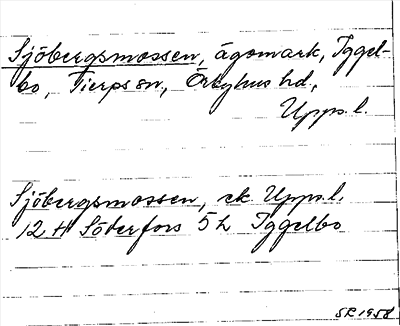 Sjöbergsmossen, ägomark, Iggel-
bo, Tierps sn, Örbyhus hd,
Upps. l.
Sjöbergsmossen, ek. Upps. l.
12 H Söderfors 5 h Iggelbo
SR 1958